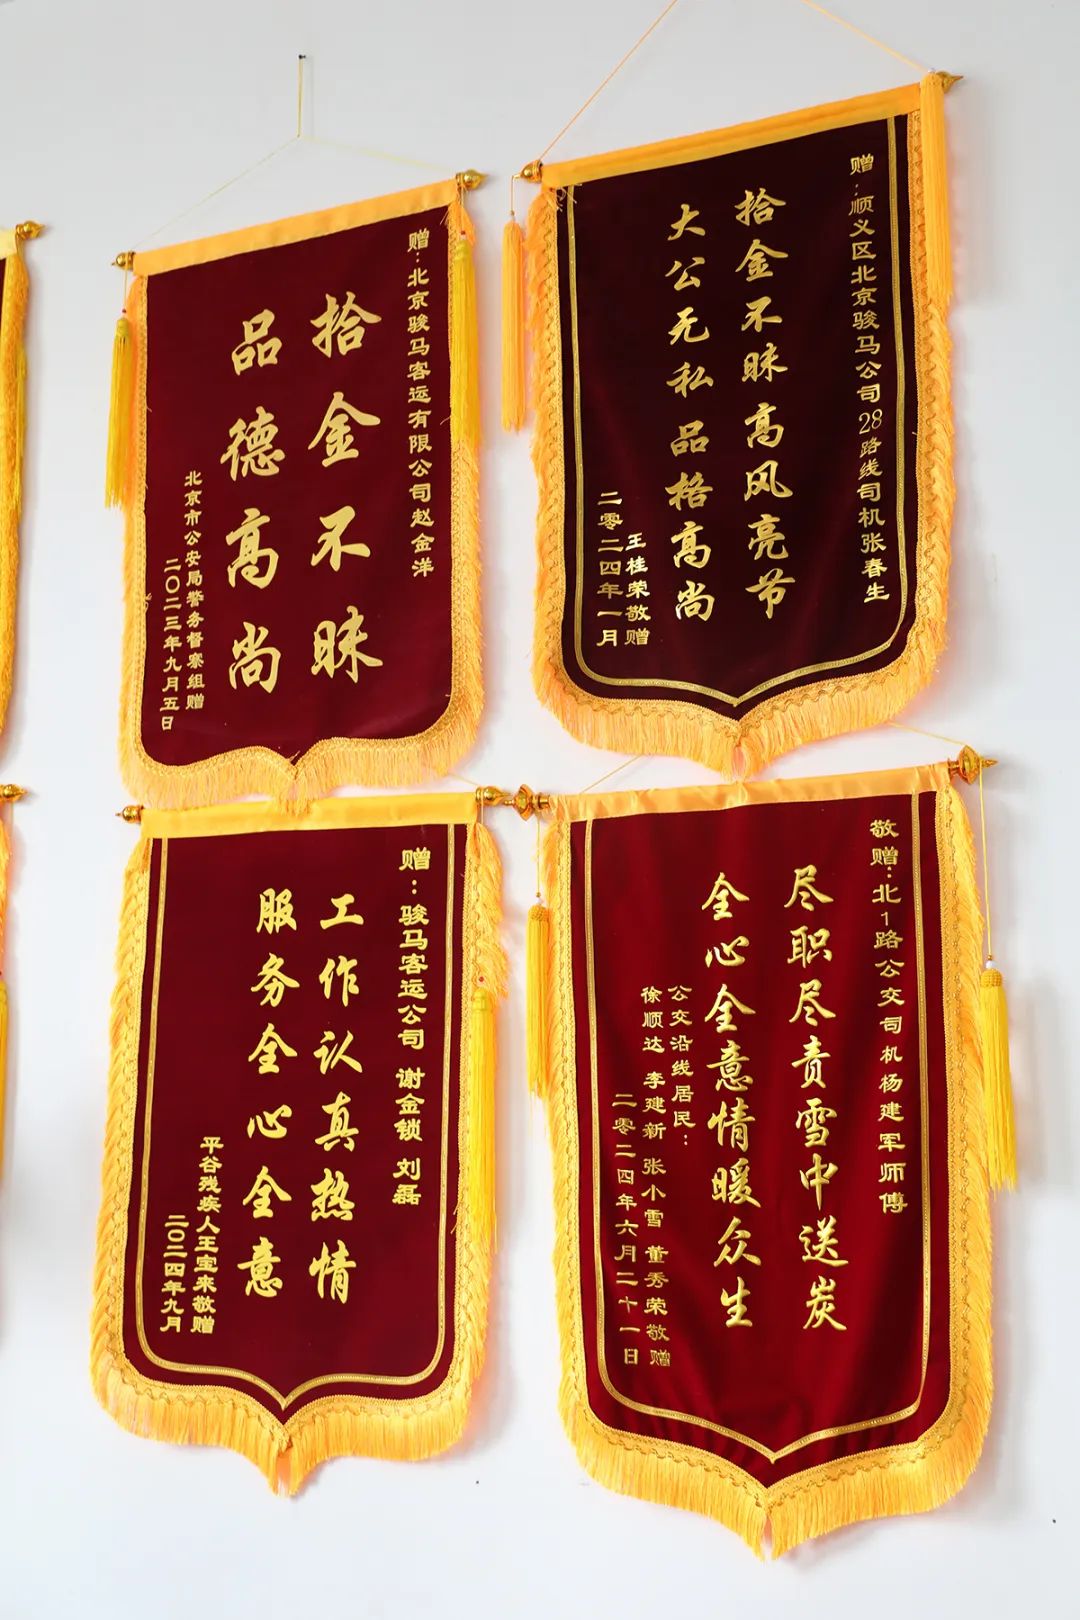 赠：北京骏马客运有限公司赵金洋
拾金不昧
品德高尚
北京市公安局警务督察组赠
二〇二三年九月五日
赠：顺义区北京骏马公司28路线司机张春生
拾金不昧高风亮节
大公无私品格高尚
王桂荣敬赠
二零二四年一月
赠：骏马客运公司 谢金锁 刘磊
工作认真热情
服务全心全意
平谷残疾人王宝来敬赠
二〇二四年九月
敬赠：北1路公交司机杨建军师傅
尽职尽责雪中送炭
全心全意情暖众生
公交沿线居民：
徐顺达 李建新 张小雪 董秀荣敬赠
二零二四年六月二十一日